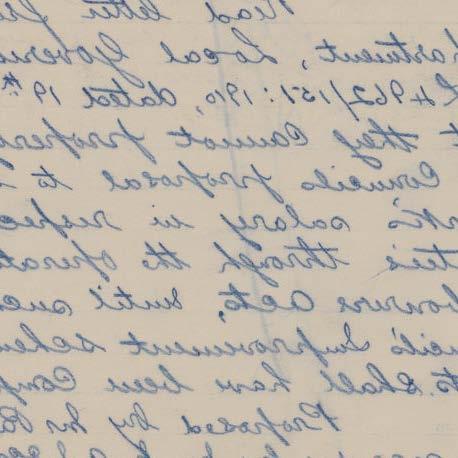 Read letter
partment, Local Govern
L 4962/151:1910, dated 19th
t they cannot proper
Council's proposal to
rk's salary in respec
ties through the operat
bourers Acts, until suc
ncil's Improvement schem
to shall have been comp
Proposed by Mr